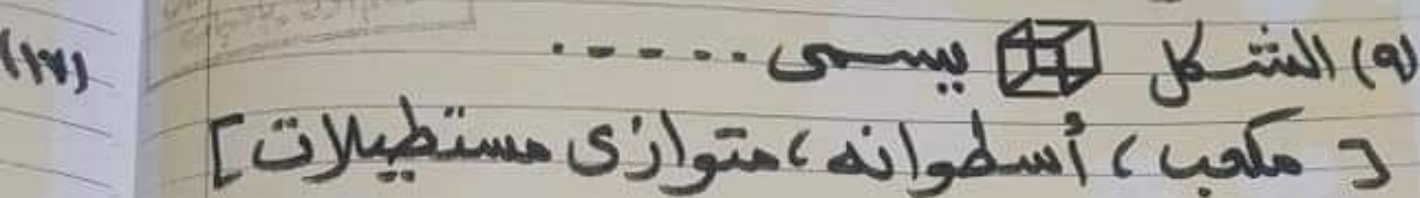 (٩) الشكل يسمى .....
[ مكعب ، أسطوانه ، متوازى مستطيلات ]